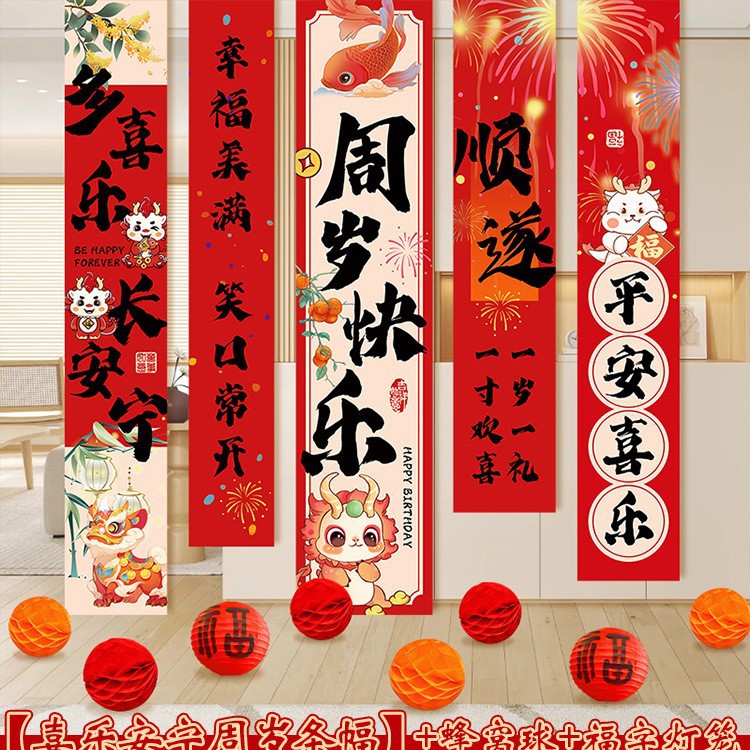 多喜乐
BE HAPPY
FOREVER
长安宁
幸福美满
笑口常开
周岁快乐
HAPPY BIRTHDAY
顺遂
一岁一礼
一寸欢喜
福
平安喜乐
福
福
【喜乐安宁周岁条幅】+蜂窝球+福字灯笼